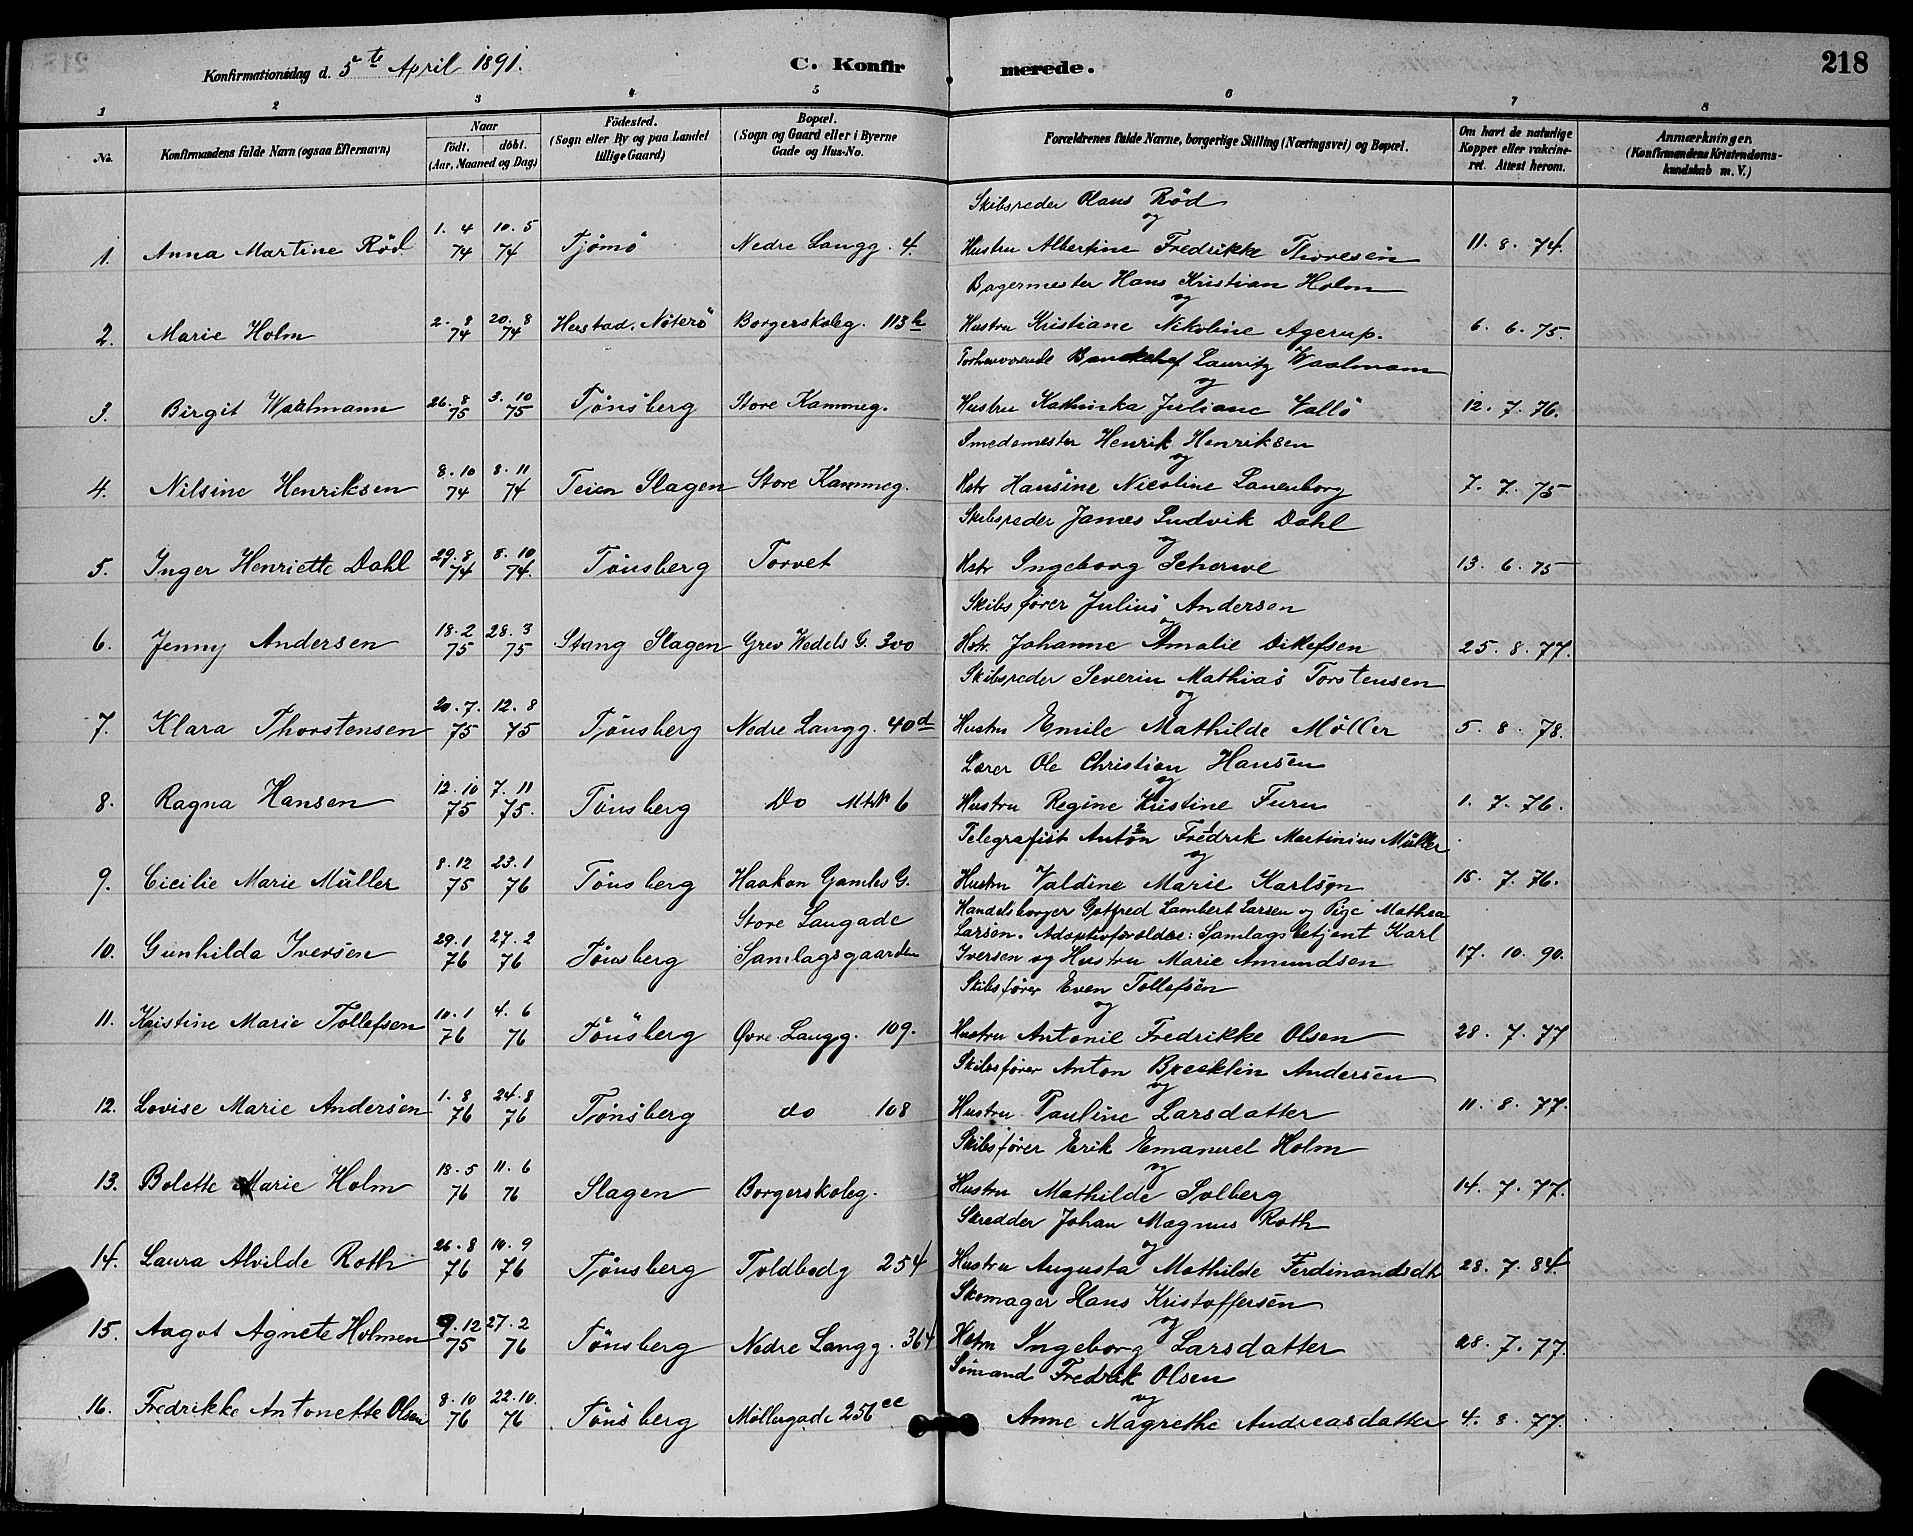 Konfirmationsdag d. 5te April 1891. C. Konfirmerede. 218
1 2 3 4 5 6 7 8
No. Konfirmandens fulde Navn (ogsaa Efternavn) Naar født. døbt. (Aar, Maaned og Dag) Fødested. (Sogn eller By og paa Landet tillige Gaard) Bopæl. (Sogn og Gaard eller i Byerne Gade og Hus-No. Forældrenes fulde Navne, borgerlige Stilling (Næringsvei) og Bopæl. Om havt de naturlige Kopper eller vakcineret. Attest herom. Anmærkninger. (Konfirmandens Kristendomskundskab m. V.)
Skibsreder Olaus Rød
og
1. Anna Martine Rød 1. 4 74 10. 5 74 Tjømø Nedre Langg. 4. Hustru Albertine Fredrikke Thoresen 11. 8. 74.
Bagermester Hans Kristian Holm
og
2. Marie Holm 2. 8 74 20. 8 74 Herstad, Nøterø Borgerskoleg. 113h Hustru Kristiane Nikoline Agerup. 6. 6. 75.
Forhenværende Bankchef Lauritz Waalmann
og
3. Birgit Waalmann 26. 8 75 3. 10 75 Tønsberg Store Kammeg. Hustru Kathinka Juliane Vallø 12. 7. 76.
Smedemester Henrik Henriksen
og
4. Nilsine Henriksen 8. 10 74 8. 11 74 Teien Slagen Store Kammeg. Hstr Hansine Nicoline Lauenborg 7. 7. 75
Skibsreder James Ludvik Dahl
og
5. Inger Henriette Dahl 29. 8 74 8. 10 74. Tønsberg Torvet Hstr Ingeborg Scherve 13. 6. 75
Skibsfører Julius Andersen
og
6. Jenny Andersen 18. 2 75 28. 3 75 Stang Slagen Grev Wedels G. 300 Hstr. Johanne Amalie Ditlefsen 25. 8. 77.
Skibsreder Severin Mathias Torstensen
og
7. Klara Thorstensen 20. 7. 75 12. 8 75 Tønsberg Nedre Langg. 40d Hustru Emile Mathilde Møller 5. 8. 78.
Lærer Ole Christian Hansen
og
8. Ragna Hansen 12. 10 75 7. 11 75. Tønsberg Do Mtk 6 Hustru Regine Kristine Furu 1. 7. 76.
Telegrafist Anton 2 Fredrik 1 Martinius Müller
og
9. Cicilie Marie Müller 8. 12 75 23. 1 76 Tønsberg Haakon Gamles G. Hustru Valdine Marie Karlsen 15. 7. 76.
Store Langade Handelsborger Gotfred Lambert Larsen og Pige Mathea
Larsen. Adoptivforældre: Samlagsbetjent Karl
10. Gunhilda Iversen 29. 1 76 27. 2 76 Tønsberg Samlagsgaarden Iversen og Hustru Marie Amundsen 17. 10. 90.
Skibsfører Even Tollefsen
og
11. Kristine Marie Tollefsen 10. 1 76 4. 6 76 Tønsberg Øvre Langg. 109. Hustru Antonie Fredrikke Olsen 28. 7. 77
Skibsfører Anton Andersen
og
12. Lovise Marie Andersen 1. 8 76 24. 8 76 Tønsberg do 108 Hustru Pauline Larsdatter 11. 8. 77.
Skibsfører Erik Emanuel Holm
og
13. Bolette Marie Holm 18. 5 76 11. 6 76 Slagen Borgerskoleg. Hustru Mathilde Solberg 14. 7. 77.
Skredder Johan Magnus Roth
og
14. Laura Alvilde Roth 26. 8 76 10. 9 76 Tønsberg Toldbodg 254 Hustru Augusta Mathilde Ferdinandsdtr 28. 7. 84.
Skomager Hans Kristoffersen
og
15. Aagot Agnete Holmen 29. 12 75 27. 2 76 Tønsberg Nedre Langg. 364 Hstru Ingeborg Larsdatter 28. 7. 77.
Sømand Fredrik Olsen
og
16. Fredrikke Antonette Olsen 8. 10 76 22. 10. 76 Tønsberg Møllergade 256ee Anne Magrethe Andreasdatter 4. 8. 77.